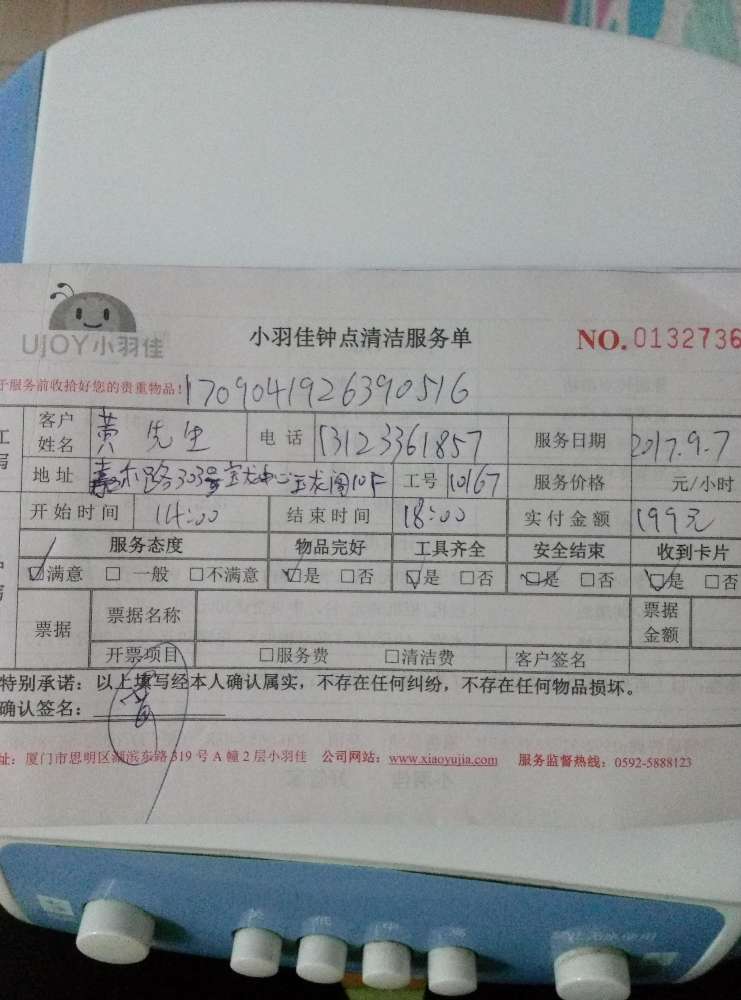 UJOY小羽佳
小羽佳钟点清洁服务单
NO.0132736
于服务前收拾好您的贵重物品!
1709041926390516
客户姓名 黄先生 电话 13123361857 服务日期 2017.9.7
地址 嘉禾路303号宝龙中心玉龙阁10F 工号 10167 服务价格 元/小时
开始时间 14:00 结束时间 18:00 实付金额 199元
服务态度 物品完好 工具齐全 安全结束 收到卡片
☑满意 □一般 □不满意 ☑是 □否 ☑是 □否 ☑是 □否 ☑是 □否
票据 票据名称 票据金额
开票项目 □服务费 □清洁费 客户签名
特别承诺：以上填写经本人确认属实，不存在任何纠纷，不存在任何物品损坏。
确认签名：
址：厦门市思明区湖滨东路319号A幢2层小羽佳 公司网站：www.xiaoyujia.com 服务监督热线：0592-5888123
关 低 中 高